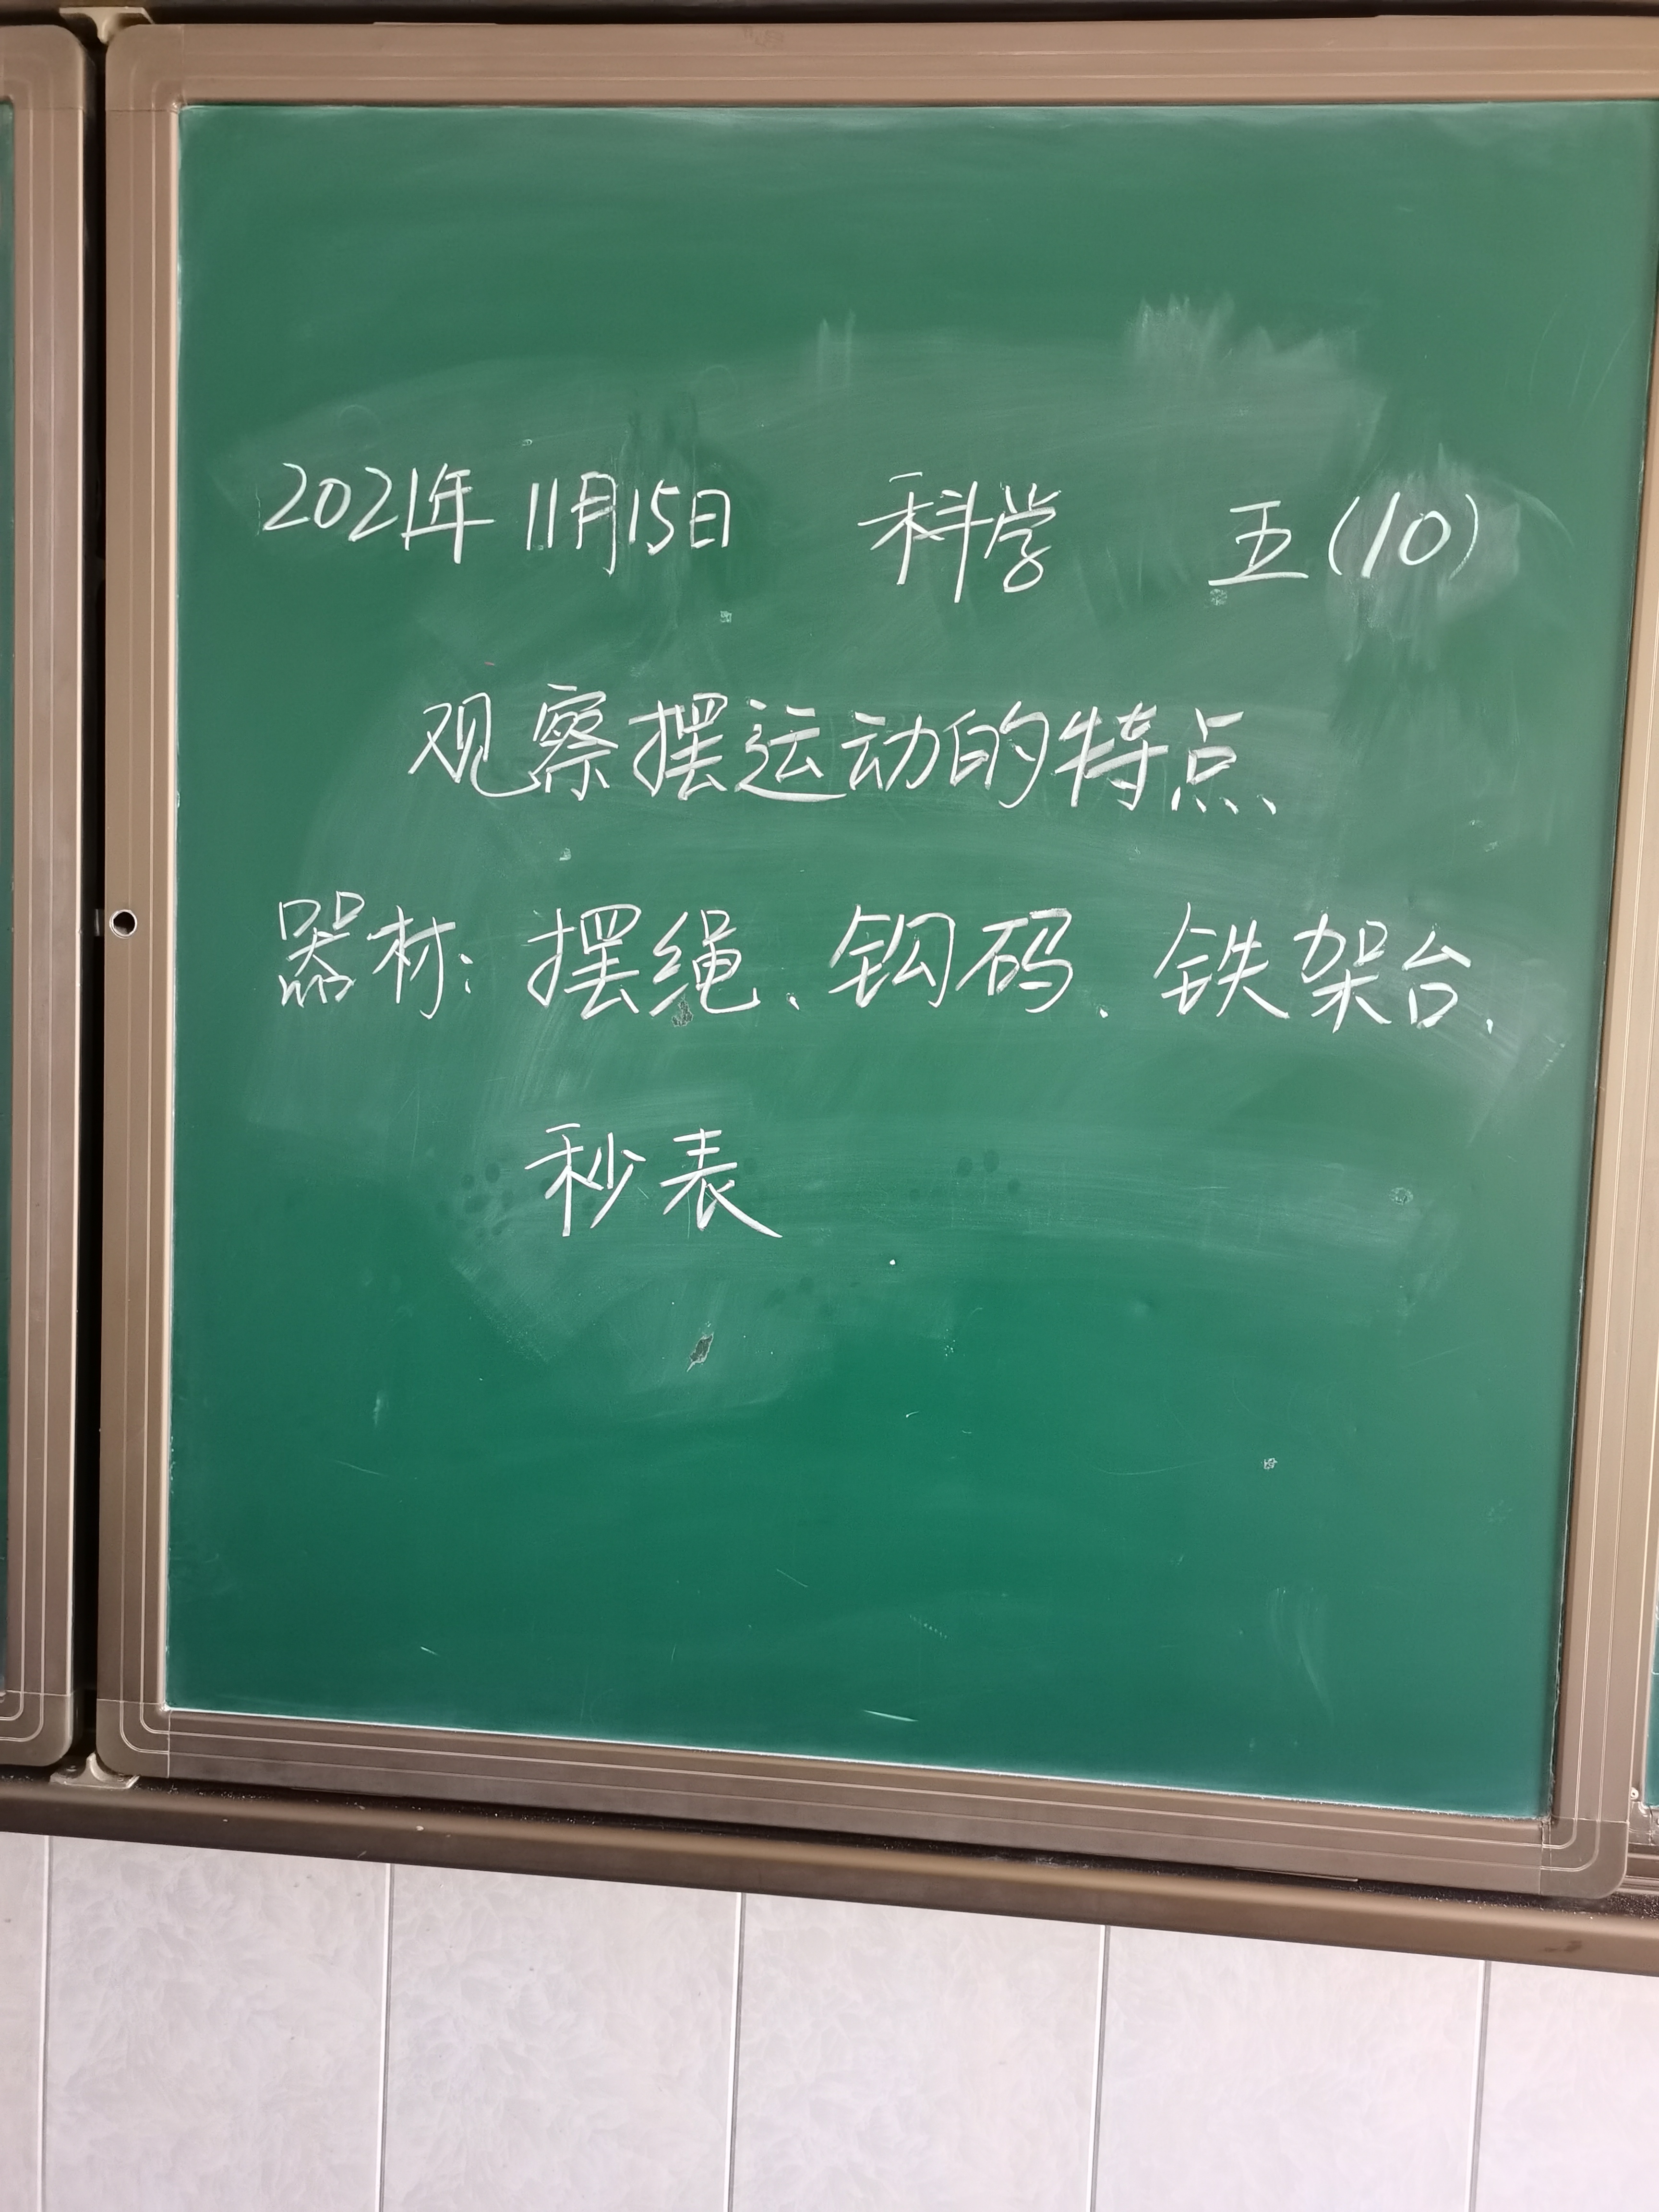 2021年 11月15日 科学 五(10)
观察摆运动的特点
器材: 摆绳、钩码、铁架台、
秒表